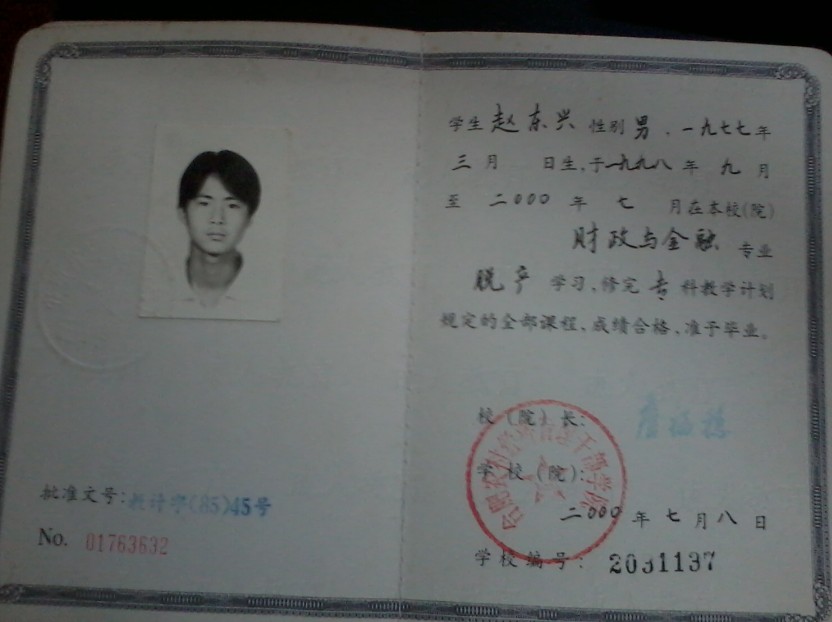 批准文号:教计字(85)45号
No. 01763632
学生 赵东兴 性别 男 , 一九七七年
三月 日生,于一九九八年 九 月
至 二000 年 七 月在本校(院)
财政与金融 专业
脱产 学习,修完 专 科教学计划
规定的全部课程,成绩合格,准予毕业。
校(院)长:
学校(院):
二000年七月八日
学校编号: 2031137